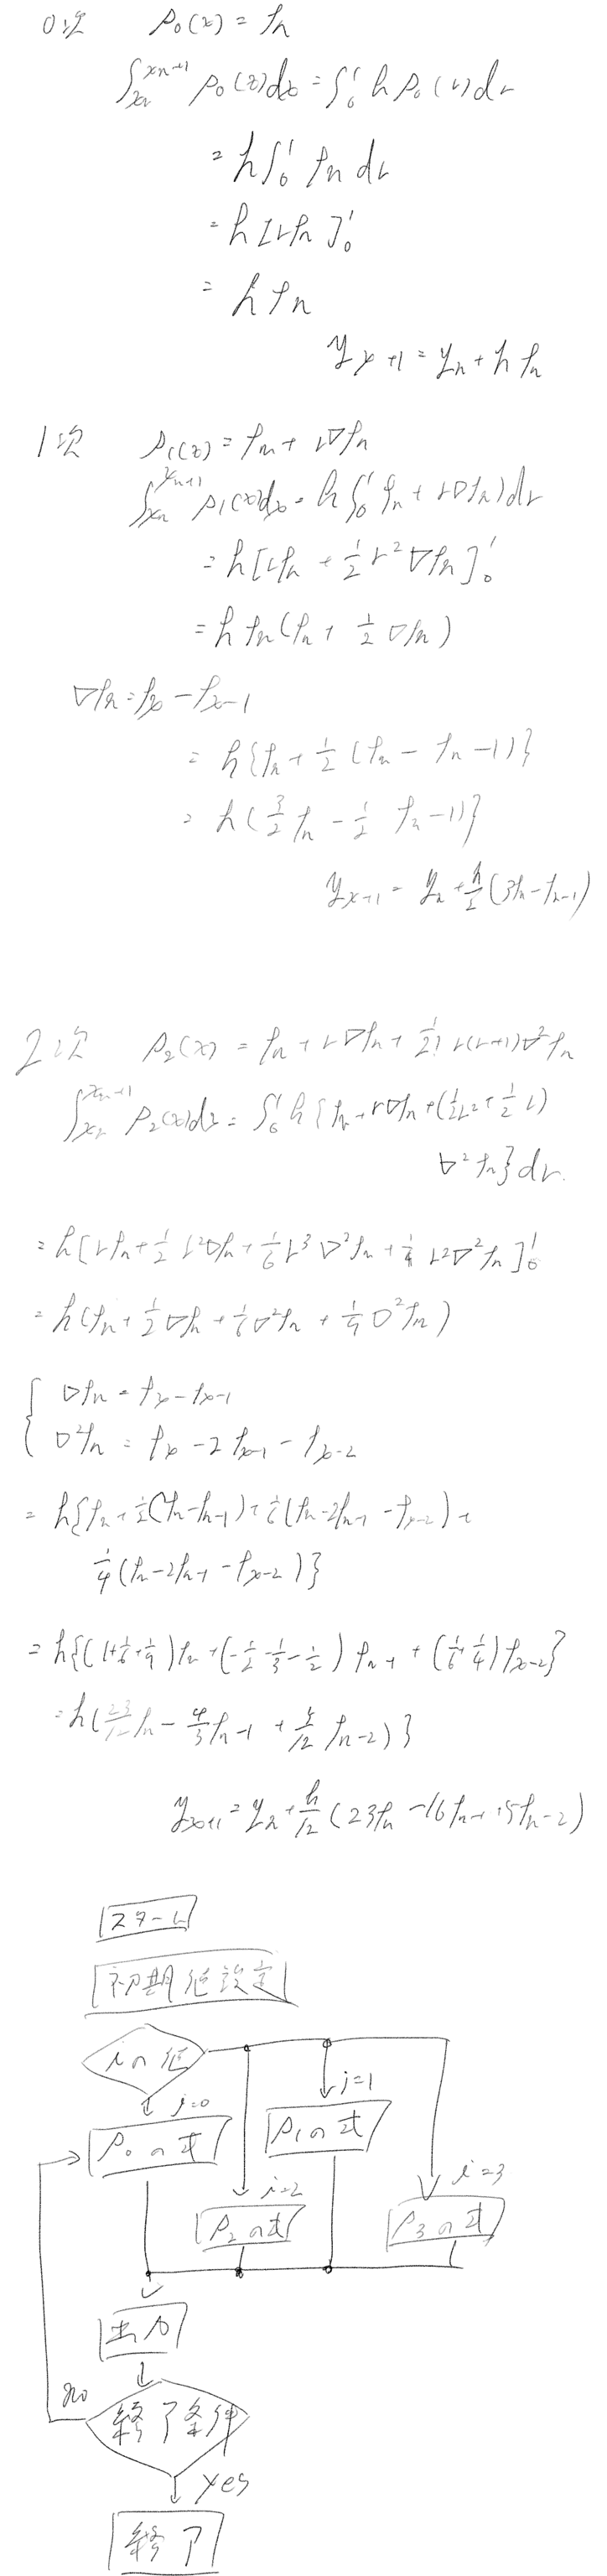 0次 P₀(x) = fn
∫xn^xn+1 P₀(x)dx = ∫₀¹ h P₀(r)dr
= h∫₀¹ fn dr
= h[rfn]₀¹
= hfn
yx+1 = yn + hfn
1次 P₁(x) = fn + r∇fn
∫xn^xn+1 P₁(x)dx = h∫₀¹(fn + r∇fn)dr
= h[rfn + 1/2 r²∇fn]₀¹
= hfn(fn + 1/2 ∇fn)
∇fn = fx - fx-1
= h{fn + 1/2(fn - fn-1)}
= h(3/2 fn - 1/2 fn-1)}
yx+1 = yn + h/2(3fn - fn-1)
2次 P₂(x) = fn + r∇fn + 1/2! r(r+1)∇²fn
∫xn^xn+1 P₂(x)dx = ∫₀¹ h{fn + r∇fn + (1/2 r² + 1/2 r)
∇²fn}dr.
= h[rfn + 1/2 r²∇fn + 1/6 r³∇²fn + 1/4 r²∇²fn]₀¹
= h(fn + 1/2 ∇fn + 1/6 ∇²fn + 1/4 ∇²fn)
{ ∇fn = fx - fx-1
∇²fn = fx - 2fx-1 - fx-2
= h{fn + 1/2(fn - fn-1) + 1/6(fn - 2fn-1 - fx-2) +
1/4(fn - 2fn-1 - fx-2)}
= h{(1 + 1/6 + 1/4)fn + (-1/2 - 1/3 - 1/2)fn-1 + (1/6 + 1/4)fx-2}
= h(23/12 fn - 4/3 fn-1 + 5/12 fn-2)}
yx+1 = yn + h/12(23fn - 16fn-1 + 5fn-2)
スタート
初期値設定
iの値
i=0
i=1
P₀の式
P₁の式
i=2
i=3
P₂の式
P₃の式
出力
no
終了条件
yes
終了